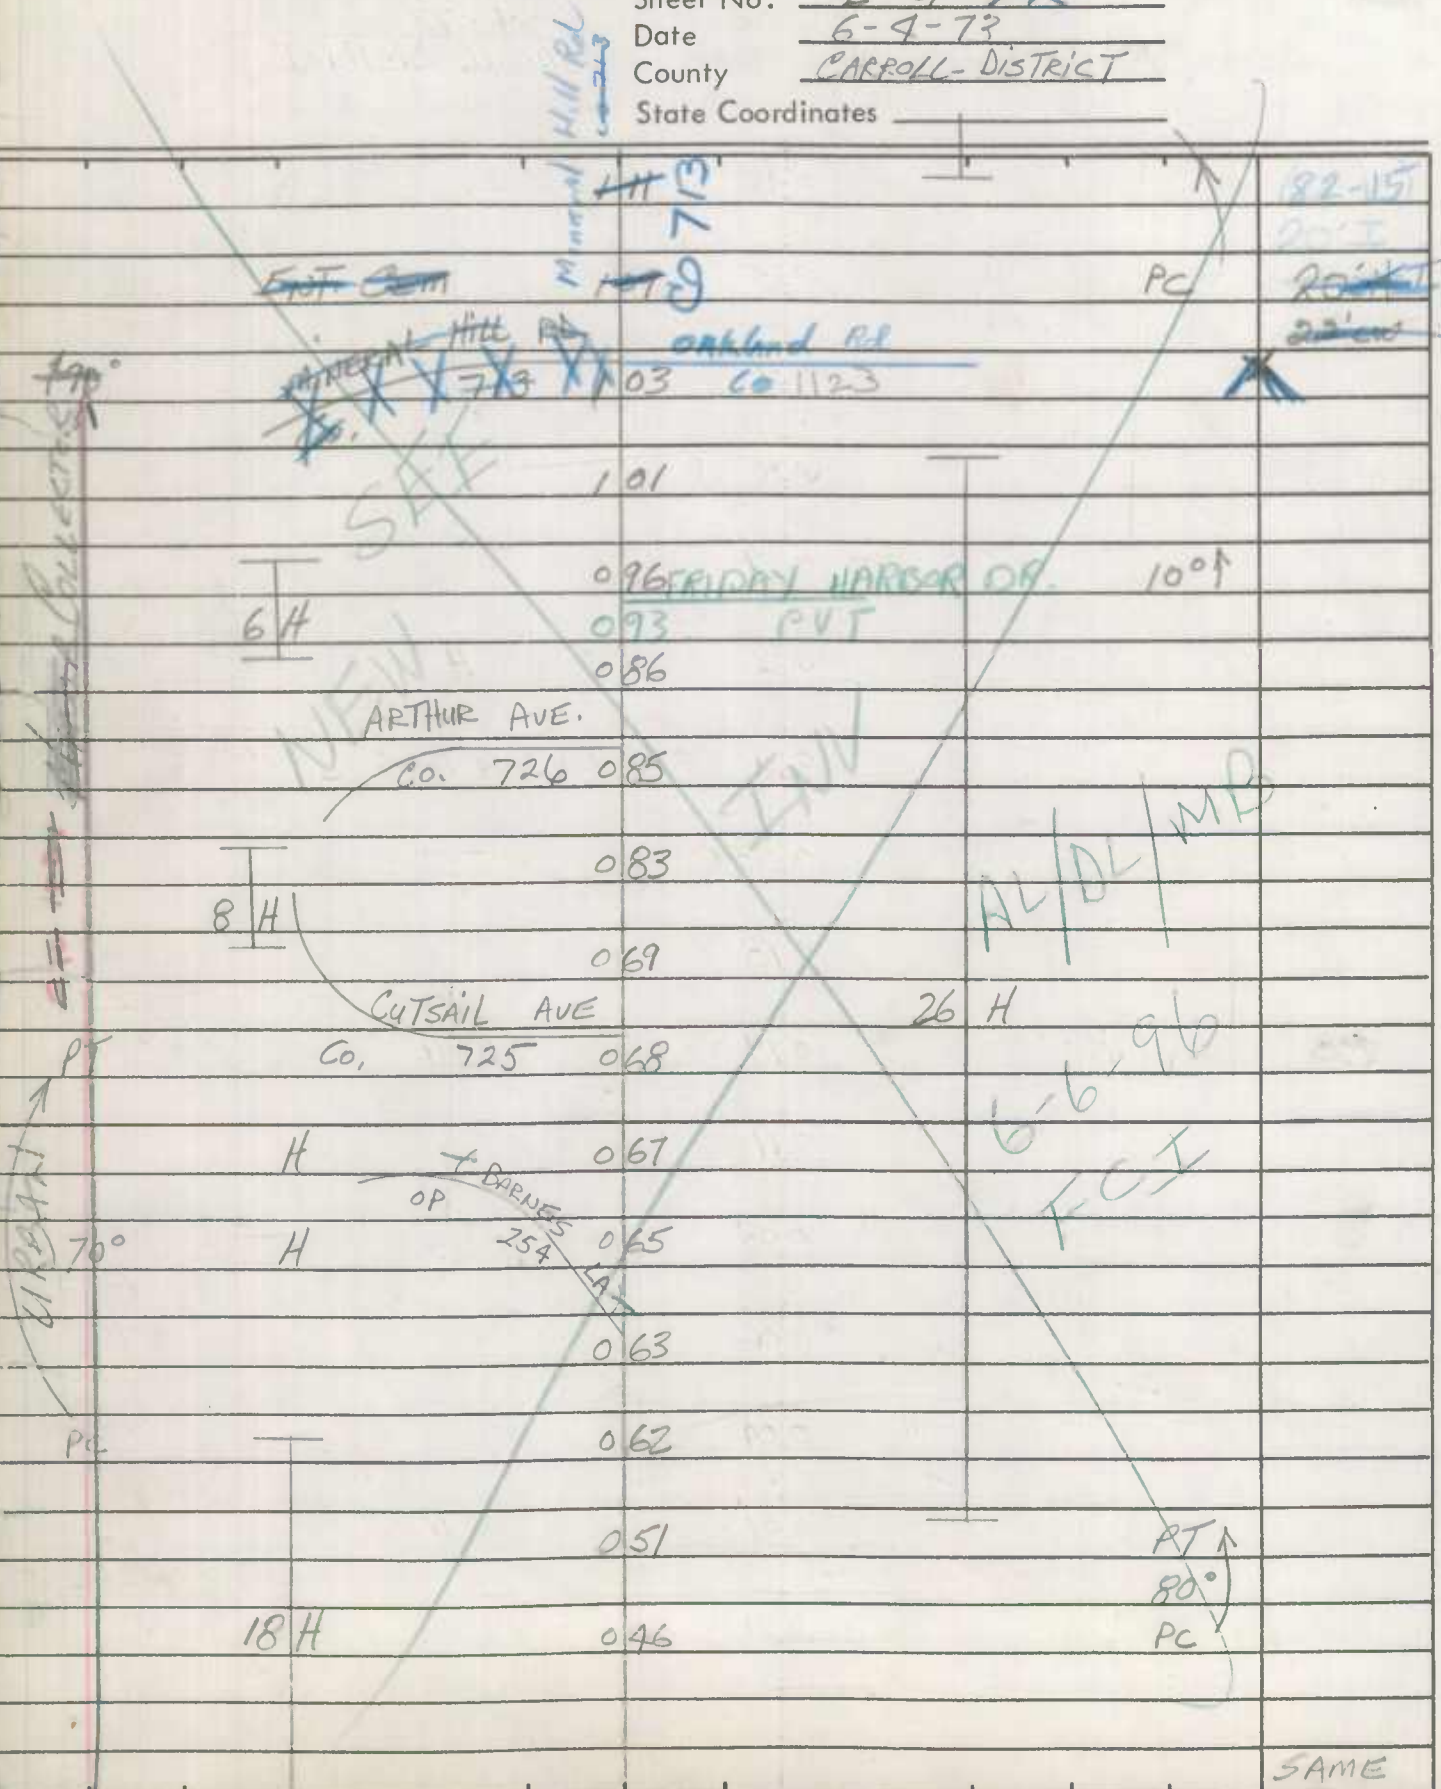 Sheet No.
Date 6-4-73
County CARROLL-DISTRICT
State Coordinates
Mineral Hill Rd
Co 713
82-15
20' I
ENT Cem
PC
MINERAL Hill Rd
Oakland Rd
Co. 713 1 03 Co 1123
SEE
1 01
0 96 FRIDAY HARBOR DR. 10°
6 H 0 93 PVT
NEW
0 86
ARTHUR AVE.
Co. 726 0 85
INV
AL/DL/MB
0 83
8 H
0 69
CUTSAIL AVE 26 H
Co. 725 0 68
PT
6-6-96
H 0 67
BARNES LA
OP 254
FCI
URBAN
70° H 0 65
0 63
PC 0 62
0 51 PT
80°
18 H 0 46 PC
SAME